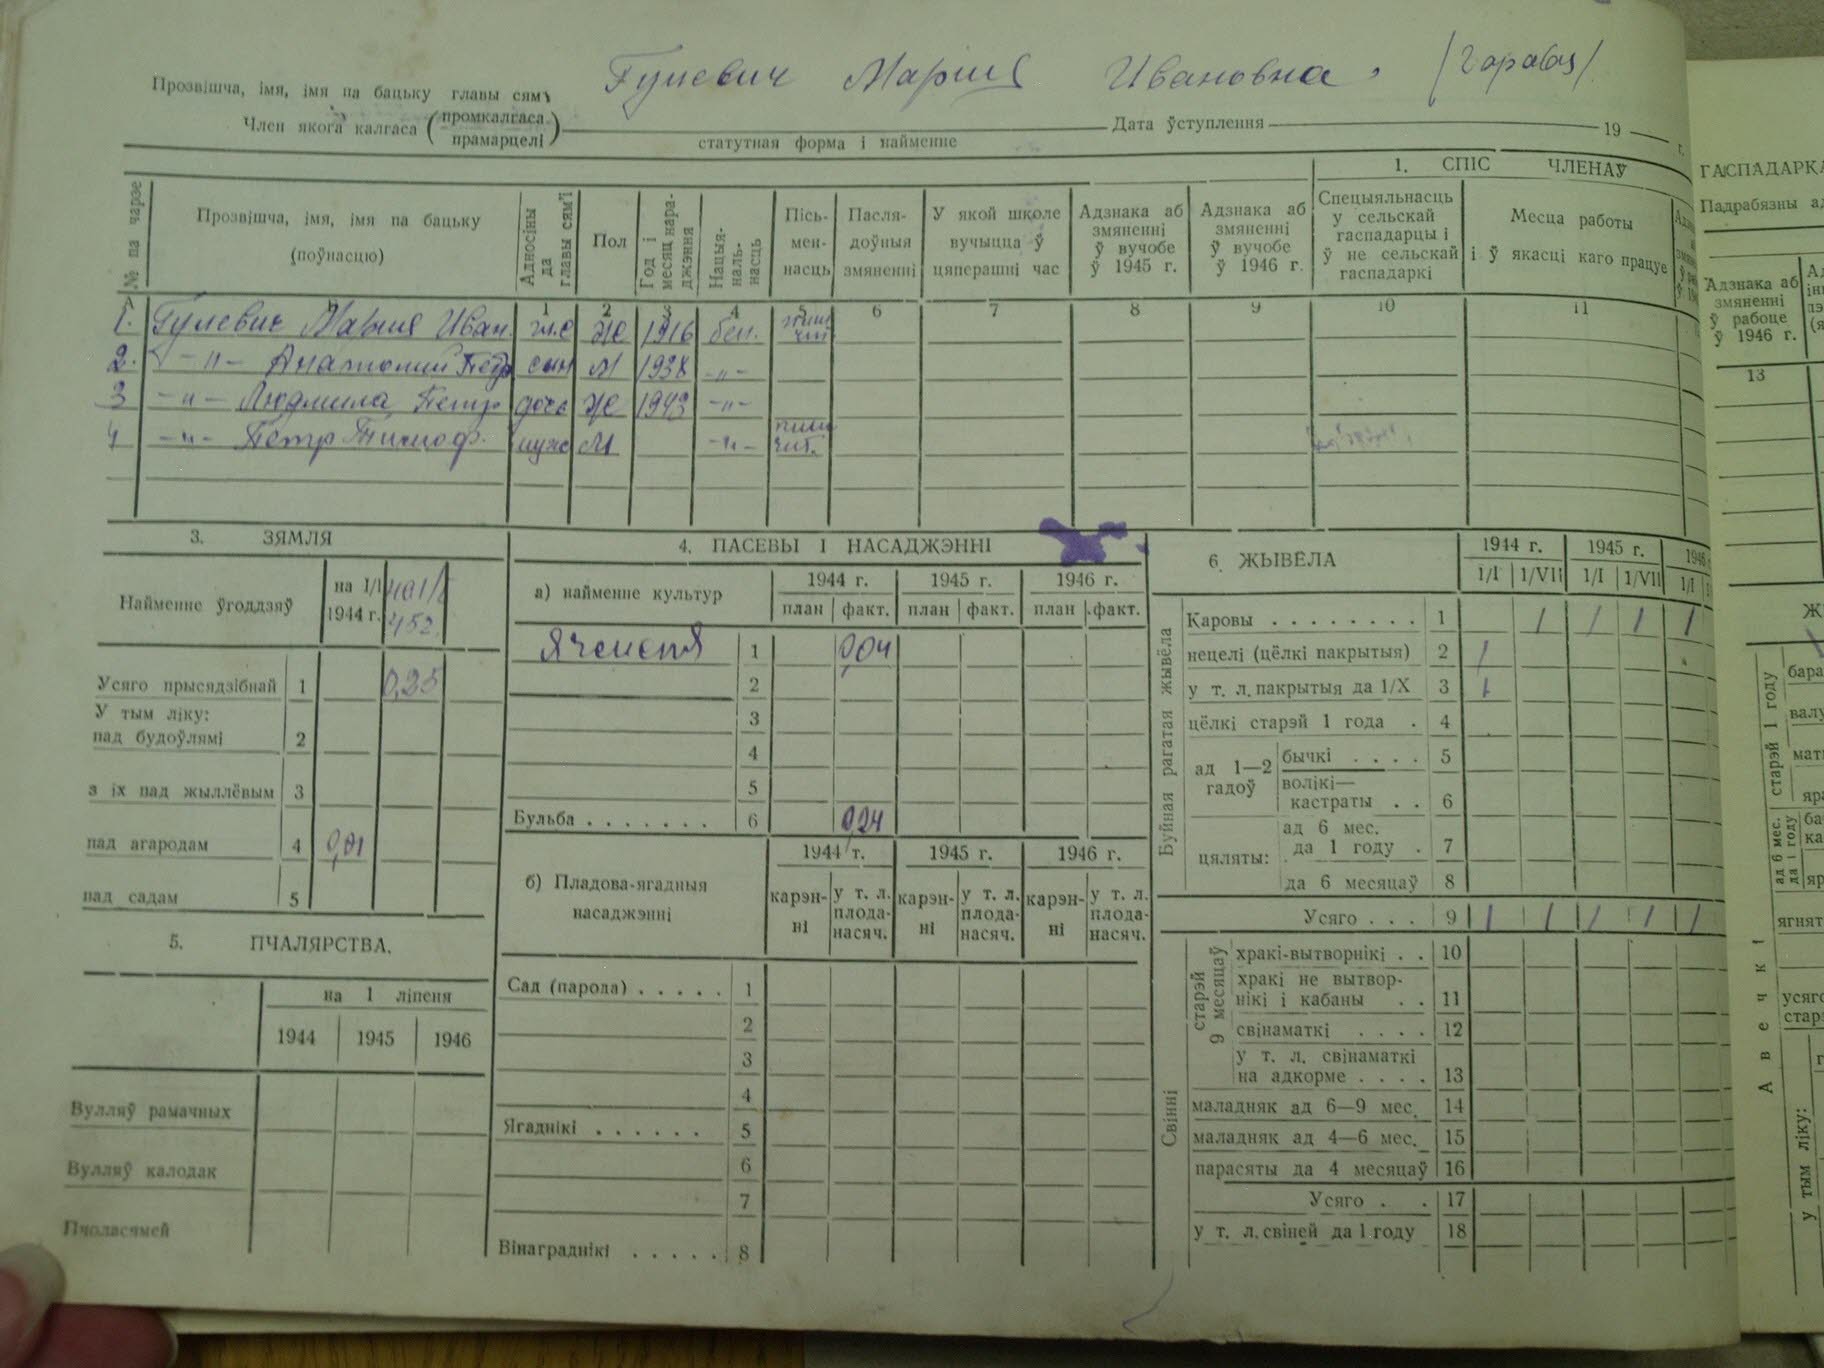 Гулевич Мария Ивановна. /Гаравая/.
Прозвішча, імя, імя па бацьку главы сям'
Член якога калгаса (промкалгаса прамарцелі) статутная форма і найменне Дата ўступлення 19 г.
1. СПІС ЧЛЕНАЎ
№ па чарзе
Прозвішча, імя, імя па бацьку (поўнасцю)
Адносіны да главы сям'і
Пол
Год і месяц нараджэння
Нацыянальнасць
Пісьменнасць
Паслядоўныя змяненні
У якой школе вучыцца ў цяперашні час
Адзнака аб змяненні ў вучобе ў 1945 г.
Адзнака аб змяненні ў вучобе ў 1946 г.
Спецыяльнасць у сельскай гаспадарцы і ў не сельскай гаспадаркі
Месца работы і ў якасці каго працуе
А 1 2 3 4 5 6 7 8 9 10 11
1. Гулевич Мария Иван. Ж 1916 бел.
2. -"- Анатолий Петр сын М 1938 -"-
3 -"- Людмила Петр дочь Ж 1943 -"-
4 -"- Петр Тимоф. муж М -"- чит.
3. ЗЯМЛЯ
Найменне ўгоддзяў
на 1/I 1944 г.
Усяго прысядзібнай 1 0,25
У тым ліку:
пад будоўлямі 2
з іх пад жыллёвым 3
пад агародам 4 0,01
пад садам 5
5. ПЧАЛЯРСТВА.
на 1 ліпеня
1944 1945 1946
Вулляў рамачных
Вулляў калодак
Пчоласямей
4. ПАСЕВЫ І НАСАДЖЭННІ
а) найменне культур
1944 г. 1945 г. 1946 г.
план факт. план факт. план факт.
Ячменя 1 0,04
2
3
4
5
Бульба . . . . . . . 6 0,24
б) Пладова-ягадныя насаджэнні
1944 г. 1945 г. 1946 г.
карэнні у т. л. плоданасяч. карэнні у т. л. плоданасяч. карэнні у т. л. плоданасяч.
Сад (парода) . . . . . 1
2
3
4
Ягаднікі . . . . . . 5
6
7
Вінаграднікі . . . . . 8
6. ЖЫВЁЛА
1944 г. 1945 г. 1946
1/I 1/VII 1/I 1/VII 1/I
Буйная рагатая жывёла
Каровы . . . . . . . . 1 1 1 1 1
нецелі (цёлкі пакрытыя) 2 1
у т. л. пакрытыя да 1/X 3 1
цёлкі старэй 1 года . 4
ад 1—2 гадоў
бычкі . . . . 5
волікі—кастраты . . 6
цяляты:
ад 6 мес. да 1 году . 7
да 6 месяцаў 8
Усяго . . . 9 1 1 1 1 1
Свінні
старэй 9 месяцаў
хракі-вытворнікі . . 10
хракі не вытворнікі і кабаны . . 11
свінаматкі . . . . 12
у т. л. свінаматкі на адкорме . . . . 13
маладняк ад 6—9 мес. 14
маладняк ад 4—6 мес. 15
парасяты да 4 месяцаў 16
Усяго . . 17
у т. л. свіней да 1 году 18
ГАСПАДАРКА
Падрабязны ад
Адзнака аб змяненні ў рабоце ў 1946 г.
13
старэй 1 году
ад 6 мес. да 1 году
Авечкі
ягнят
усяго
у тым ліку: